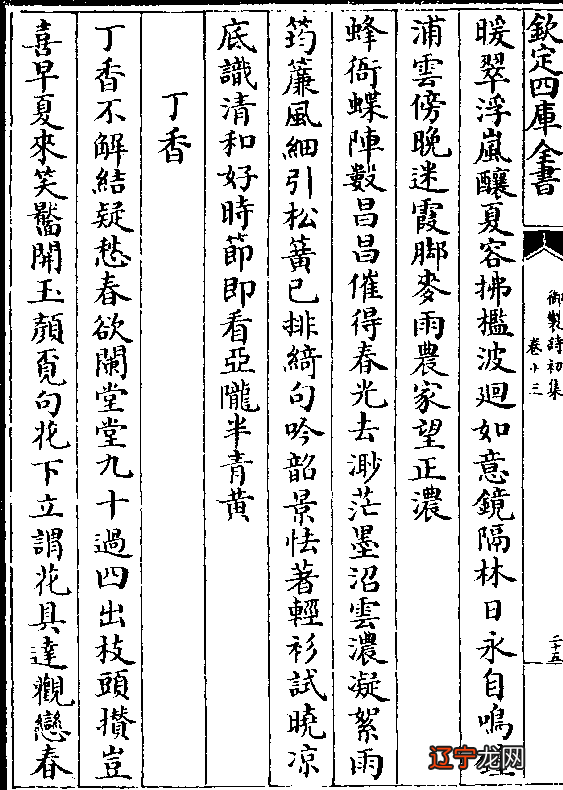 欽定四庫全書
御製詩初集
卷十三
二十五
暖翠浮嵐釀夏容拂檻波迴如意鏡隔林日永自鳴鐘
浦雲傍晚迷霞脚麥雨農家望正濃
蜂衙蝶陣數昌昌催得春光去渺茫墨沼雲濃凝絮雨
筠簾風細引松簧已排綺句吟韶景怯著輕衫試曉凉
底識清和好時節即看亞隴半青黃
丁香
丁香不解結疑愁春欲闌堂堂九十過四出枝頭攢豈
喜早夏來笑靨開玉顏覓句花下立謂花具達觀戀春
辽宁龙网